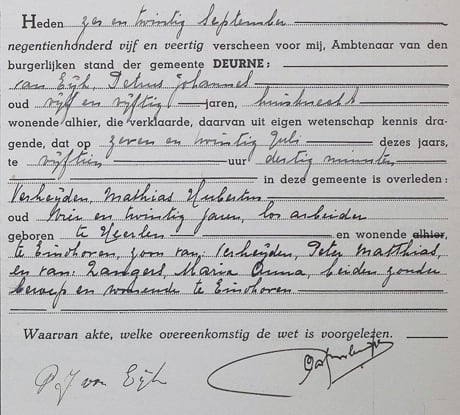 Heden zes en twintig September
negentienhonderd vijf en veertig verscheen voor mij, Ambtenaar van den
burgerlijken stand der gemeente DEURNE:
van Eijk, Petrus Johannes
oud vijf en vijftig jaren, huisknecht
wonende alhier, die verklaarde, daarvan uit eigen wetenschap kennis dra-
gende, dat op zeven en twintig Juli dezes jaars,
te vijftien uur dertig minuten
in deze gemeente is overleden:
Verheijden, Mathias Hubertus
oud drie en twintig jaren, los arbeider
geboren te Heerlen en wonende alhier,
te Eindhoven, zoon van: Verheijden, Peter Matthias,
en van: Zangers, Maria Anna, beiden zonder
beroep en wonende te Eindhoven
Waarvan akte, welke overeenkomstig de wet is voorgelezen.
P J van Eijk